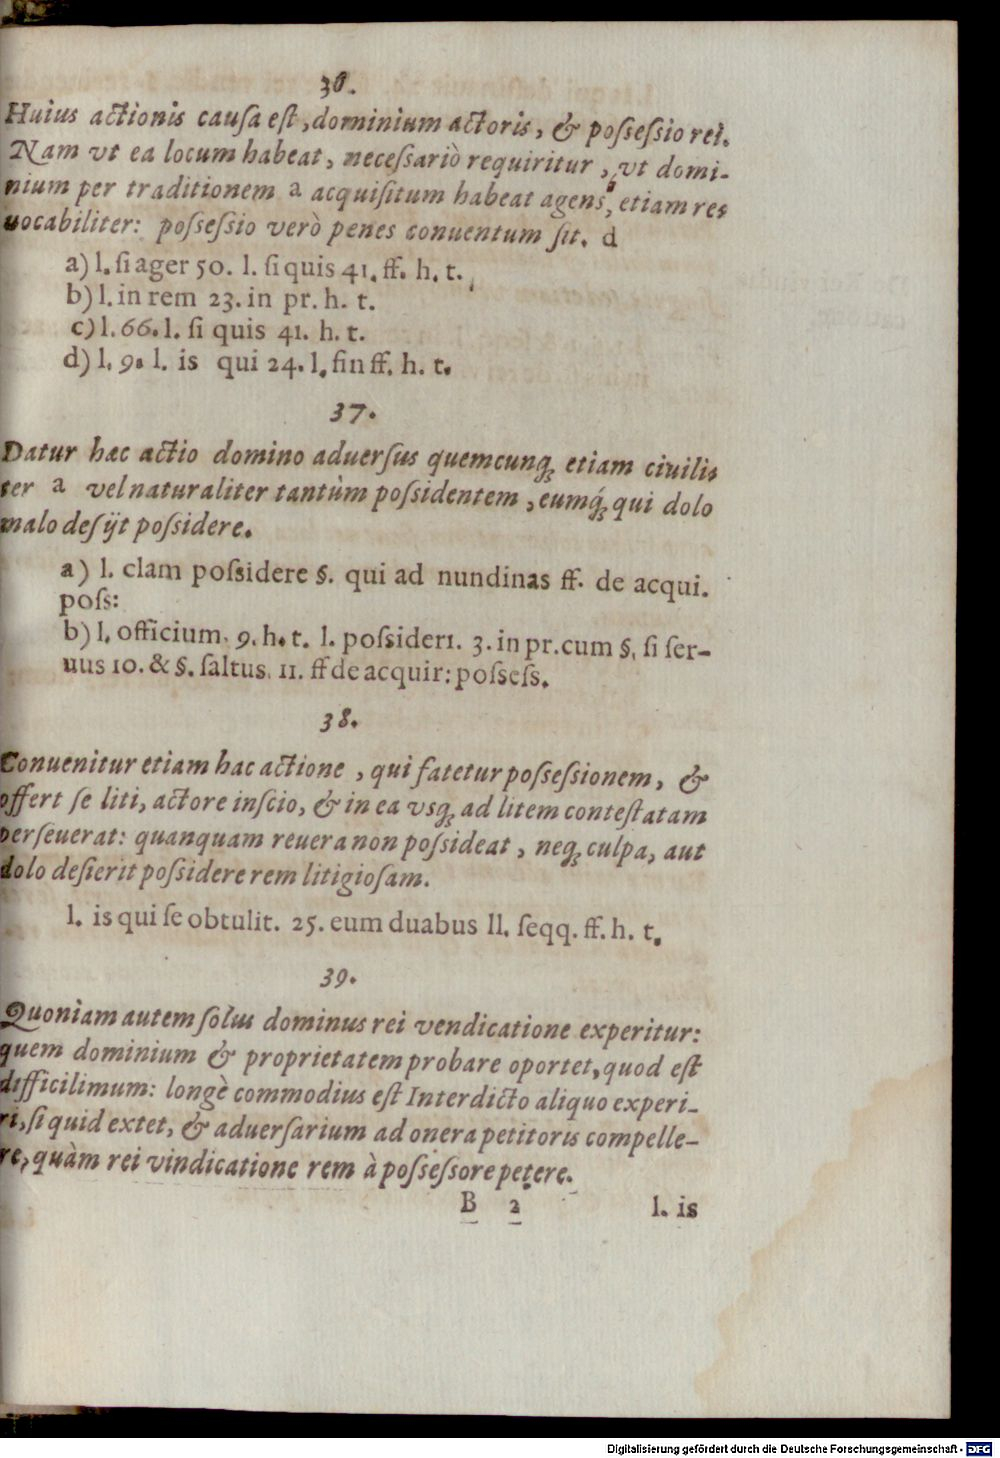 36.
Huius actionis causa est, dominium actoris, & possessio rei.
Nam vt ea locum habeat, necessariò requiritur, vt domi-
nium per traditionem a acquisitum habeat agens, etiam re-
uocabiliter: possessio verò penes conuentum sit. d
a) l. si ager 50. l. si quis 41. ff. h. t.
b) l. in rem 23. in pr. h. t.
c) l. 66. l. si quis 41. h. t.
d) l. 9. l. is qui 24. l. fin ff. h. t.
37.
Datur hac actio domino aduersus quemcunq; etiam ciuili-
ter a vel naturaliter tantùm possidentem, eumq́; qui dolo
malo desijt possidere.
a) l. clam possidere §. qui ad nundinas ff. de acqui.
poss:
b) l. officium. 9. h. t. l. possideri. 3. in pr. cum §. si ser-
uus 10. & §. saltus. 11. ff de acquir: possess.
38.
Conuenitur etiam hac actione, qui fatetur possessionem, &
offert se liti, actore inscio, & in ea vsq; ad litem contestatam
perseuerat: quanquam reuera non possideat, neq; culpa, aut
dolo desierit possidere rem litigiosam.
l. is qui se obtulit. 25. eum duabus ll. seqq. ff. h. t.
39.
Quoniam autem solus dominus rei vendicatione experitur:
quem dominium & proprietatem probare oportet, quod est
difficilimum: longè commodius est Interdicto aliquo experi-
ri, si quid extet, & aduersarium ad onera petitoris compelle-
re, quàm rei vindicatione rem à possessore petere.
B 2 l. is
Digitalisierung gefördert durch die Deutsche Forschungsgemeinschaft - DFG